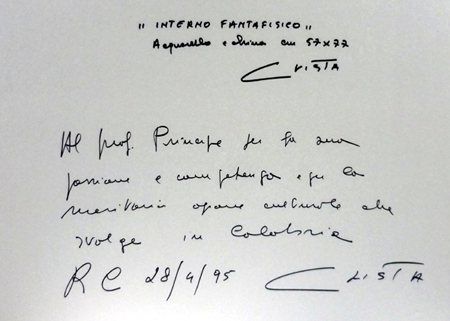 "INTERNO FANTAFISICO"
Acquarello e china cm 57x77
CRISTA
Al prof. Principe per la sua
passione e competenza e per la
meritoria opera culturale che
svolge in Calabria
RC 28/4/95 CRISTA